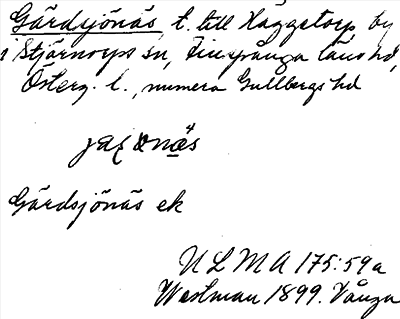 Gärdsjönäs, t. till Häggetorp, by
i Stjärnorps sn, Finspånga läns hd,
Österg. l., numera Gullbergs hd
Gärdsjönäs ek
ULMA 175:59a
Westman 1899. Vånga